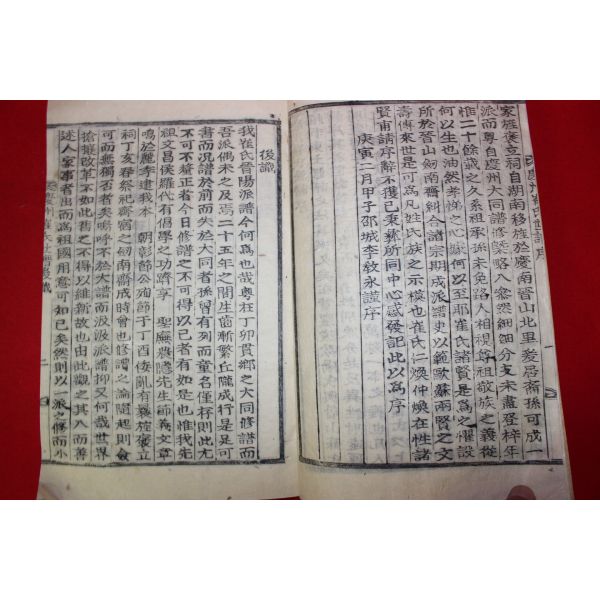 家旌褒立祠自湖南移旌於慶南晉山北里愛居齋孫可成一
派而粤自慶州大同譜修槩略入叅然細細分支未盡登梓年
惟二十餘歲之久系祖承孫未免路人相視尊祖敬族之義從
何以生也油然孝悌之心嶽何以至耶崔氏諸賢是爲之懼設
所於晉山釰南齋糾合諸宗期成派譜史以範歐蘇兩賢之文
壽傳來世是可爲凡姓氏族之示模也崔氏仁煥仲煥在性諸
賢甫請序辭不獲已秉彛所同中心感發記此以爲序
庚寅二月甲子邵城李敎永謹序
一
後識
我崔氏晉陽派譜今何爲也哉粤在丁卯貴鄕之大同修譜而
吾派偶未之及焉二十五年之間生齒漸繁丘隴成行是足可
書而況譜於前而失於大同者孫曾有列而童名僅存則此尤
不可不釐正者今日修譜之不可得以已者有如是也惟我先
祖文昌侯羅代有倡學之功躋享 聖廡農隱先生節義文章
鳴於麗季逮我本 朝彰節公殉節于丁酉倭亂有旌褒立
祠丁亥春祭祀齋宿之釰南齋成時會也修譜之論隨起則僉
可而無獨否者矣嗚呼不於大譜而汲汲派譜抑又何哉世界
搶攘改革不如此舊之不得以維新故也由此觀之其入而善
述人家事者出而爲祖國用意可如已矣然則以 派之修而小
二